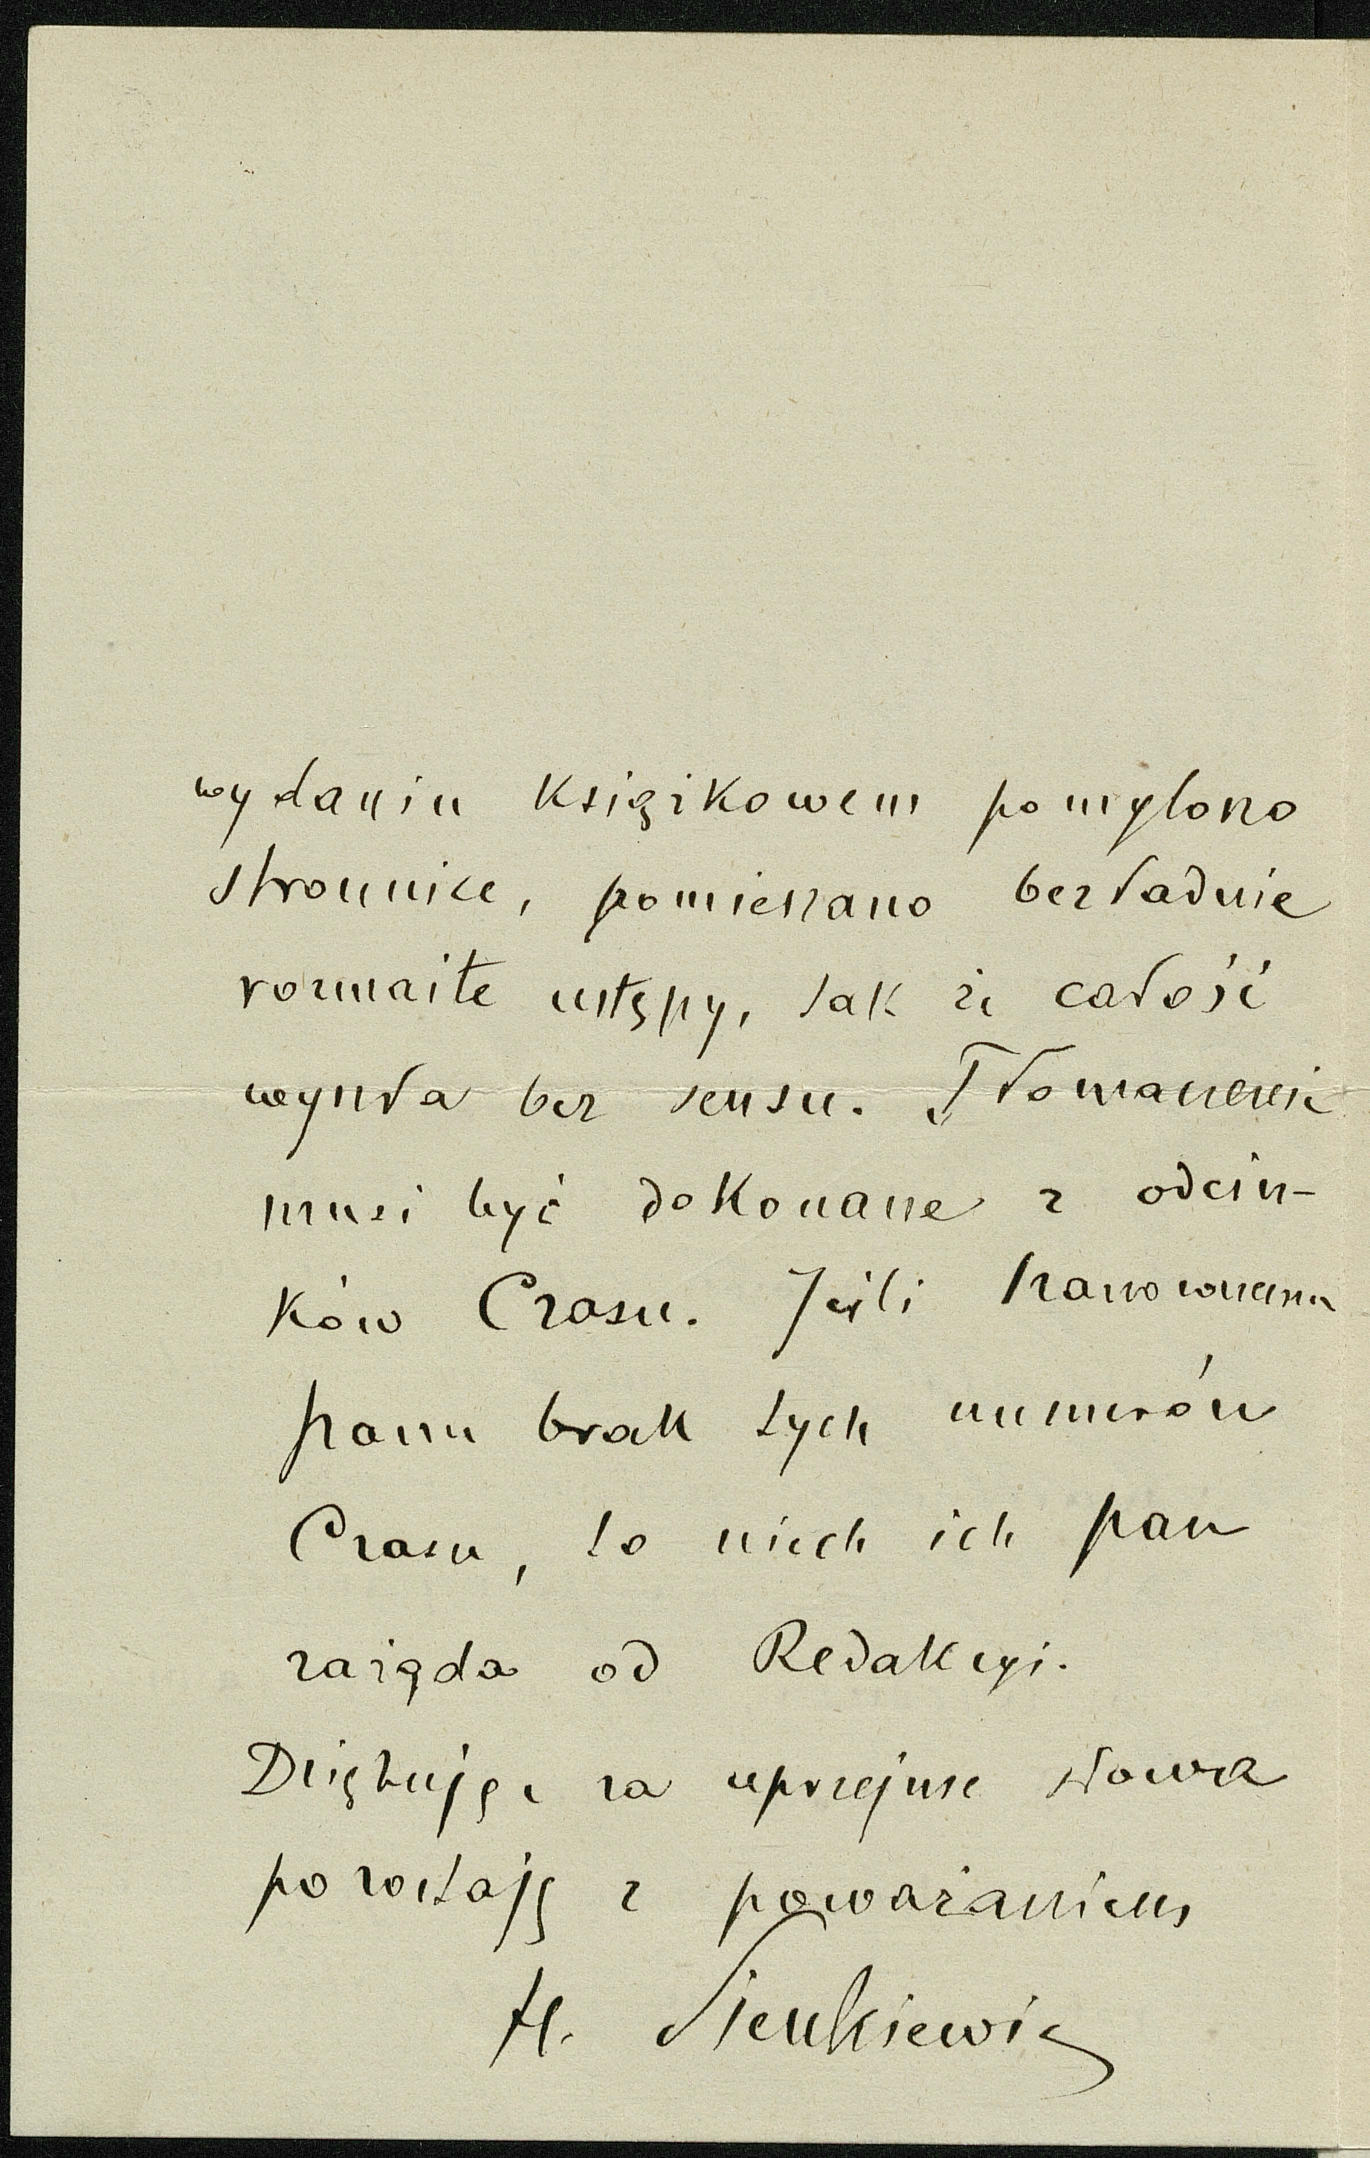 wydaniu książkowem pomylono
stronnice, pomieszano bezładnie
rozmaite ustępy, tak że całość
wyszła bez sensu. Tłomaczenie
musi być dokonane z odcin-
ków Czasu. Jeśli szanownemu
panu brak tych numerów
Czasu, to niech ich pan
zażąda od Redakcyi.
Dziękując za uprzejme słowa
pozostaję z poważaniem
H. Sienkiewicz